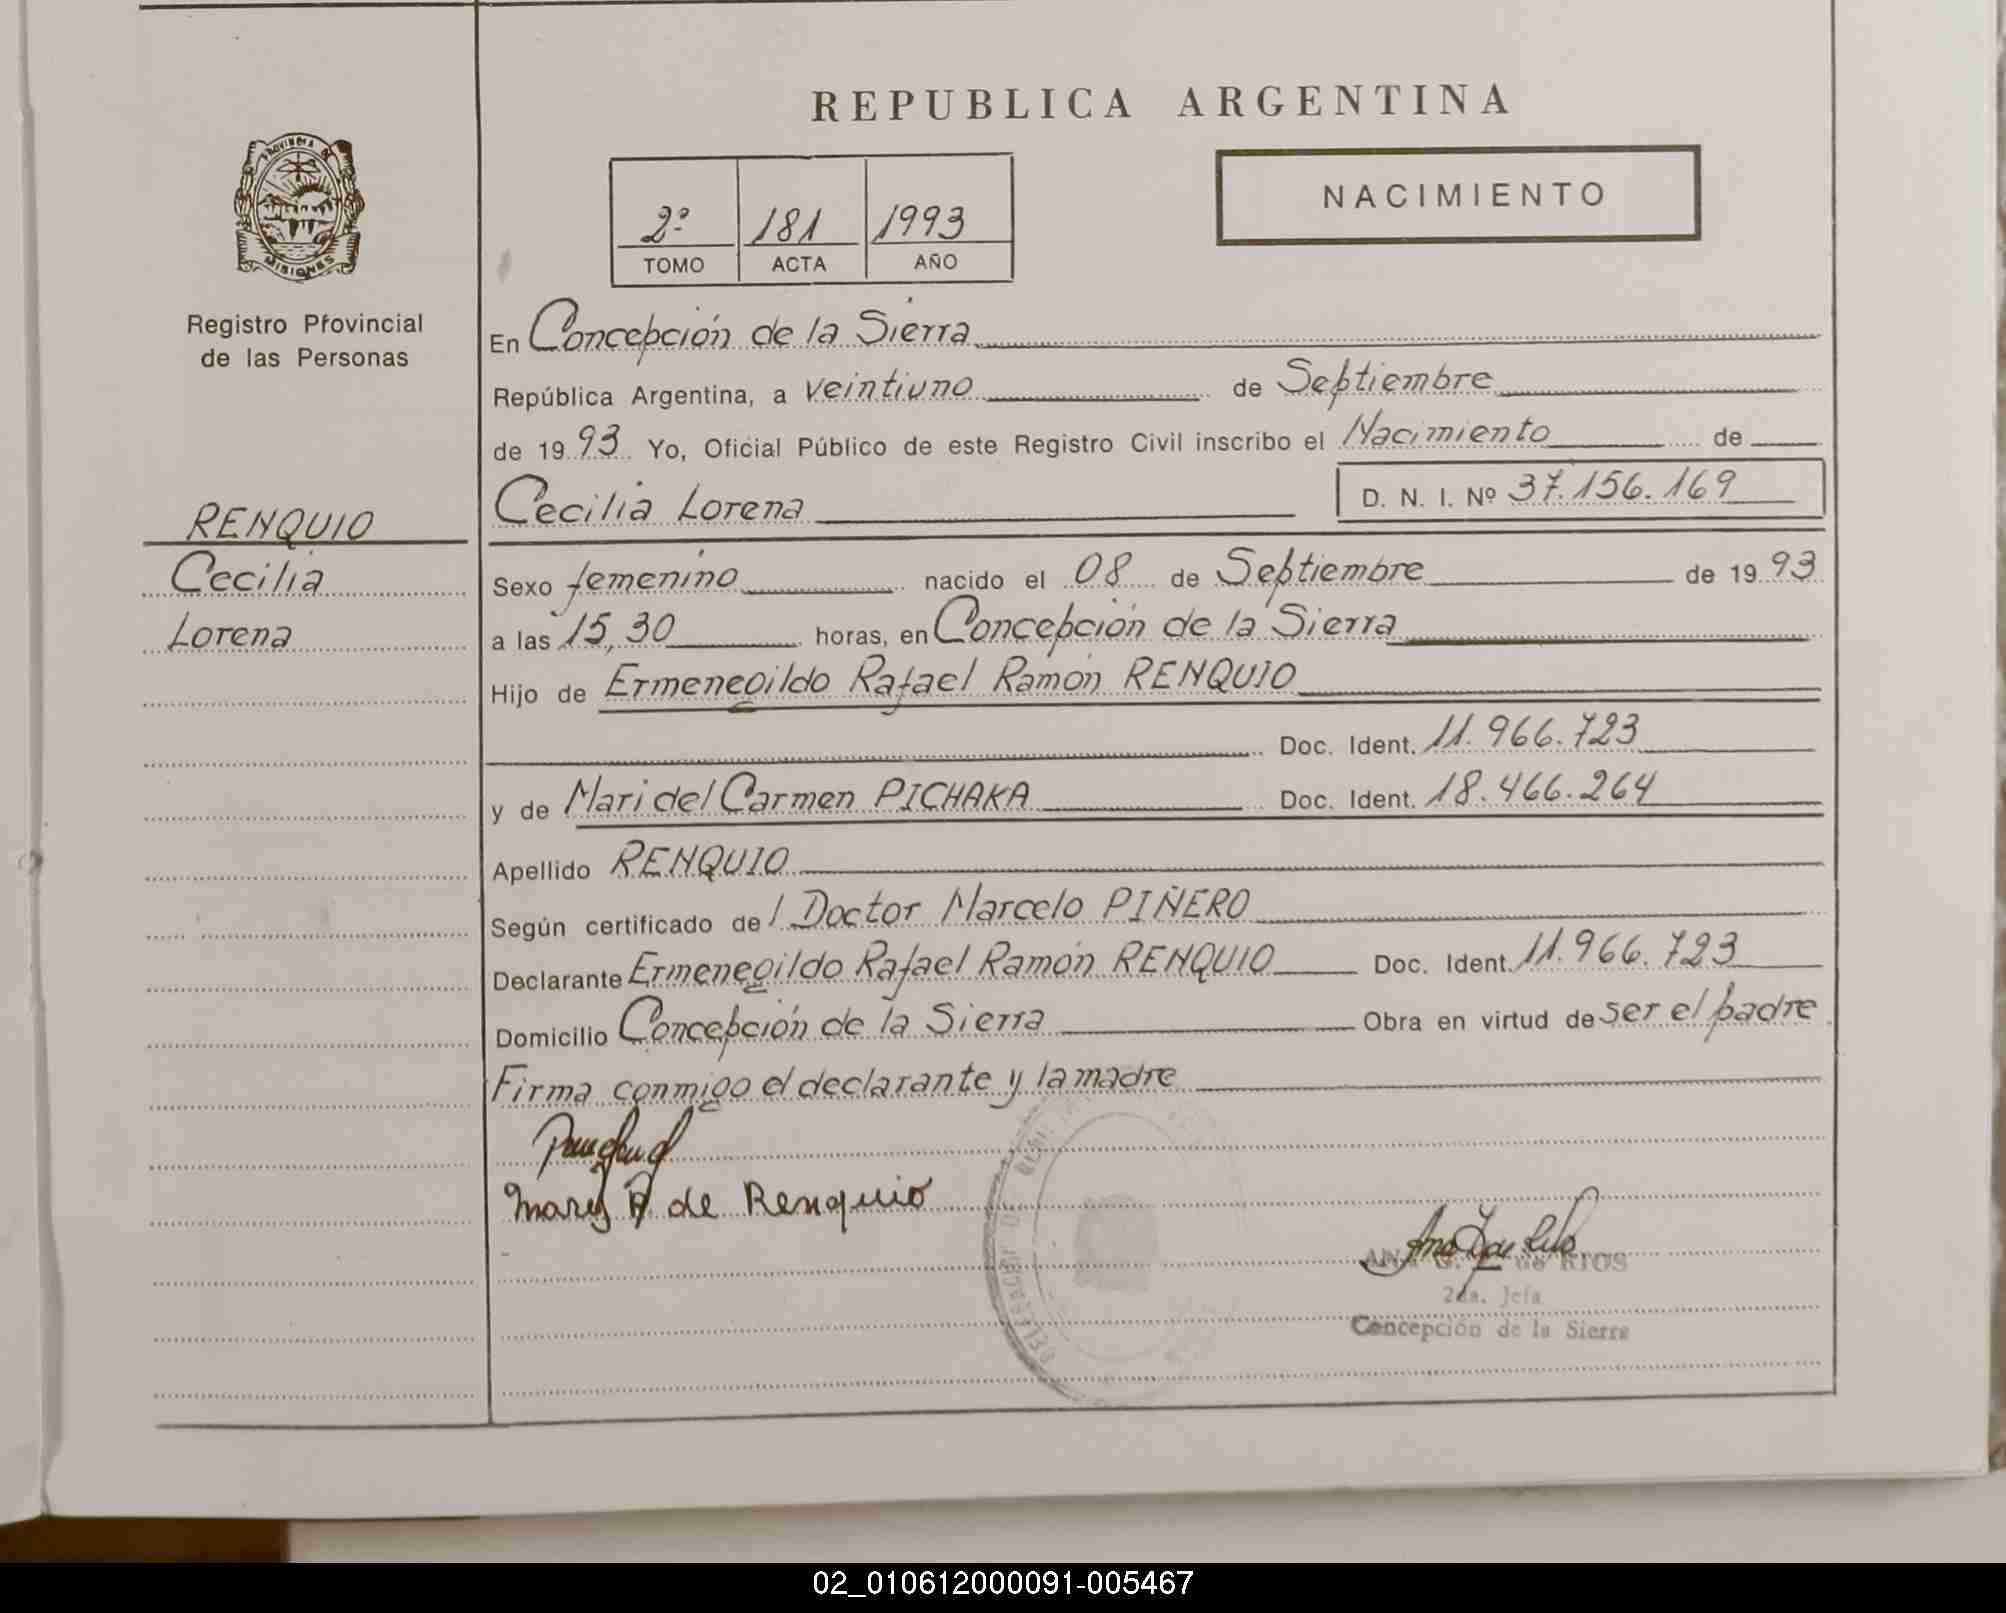 REPUBLICA ARGENTINA
PROVINCIA DE
MISIONES
Registro Provincial
de las Personas
2º 181 1993
TOMO ACTA AÑO
NACIMIENTO
En Concepción de la Sierra
República Argentina, a veintiuno de Septiembre
de 1993 Yo, Oficial Público de este Registro Civil inscribo el Nacimiento de
Cecilia Lorena D. N. I. Nº 37.156.169
RENQUIO
Cecilia
Lorena
Sexo femenino nacido el 08 de Septiembre de 1993
a las 15,30 horas, en Concepción de la Sierra
Hijo de Ermenegildo Rafael Ramón RENQUIO
Doc. Ident. 11.966.723
y de Mari del Carmen PICHAKA Doc. Ident. 18.466.264
Apellido RENQUIO
Según certificado del Doctor Marcelo PIÑERO
Declarante Ermenegildo Rafael Ramón RENQUIO Doc. Ident. 11.966.723
Domicilio Concepción de la Sierra Obra en virtud de ser el padre
Firma conmigo el declarante y la madre
Mary P de Renquio
de RIOS
2da. Jefa
Concepción de la Sierra
02_010612000091-005467